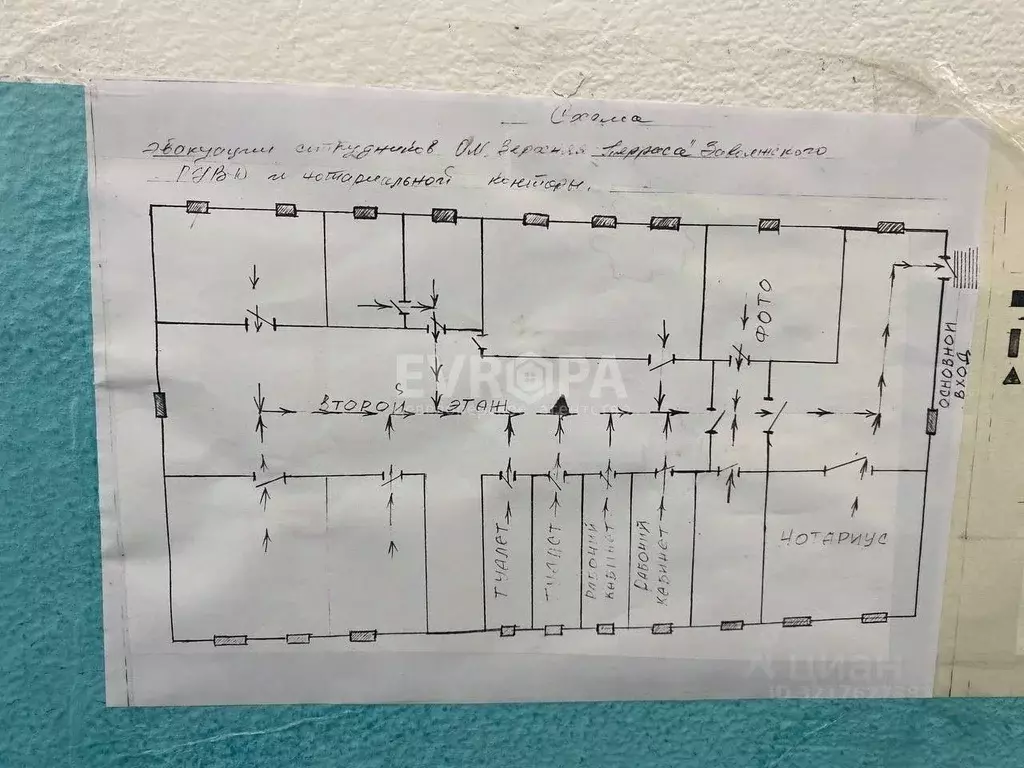 Схема
эвакуации сотрудников ОМ "Верхняя Терраса" Заволжского
ГУВД и нотариальной конторы.
ФОТО
EVROPA
ОСНОВНОЙ
ВХОД
ВТОРОЙ ЭТАЖ
НОТАРИУС
ТУАЛЕТ
ТУАЛЕТ
РАБОЧИЙ
КАБИНЕТ
РАБОЧИЙ
КАБИНЕТ
циан